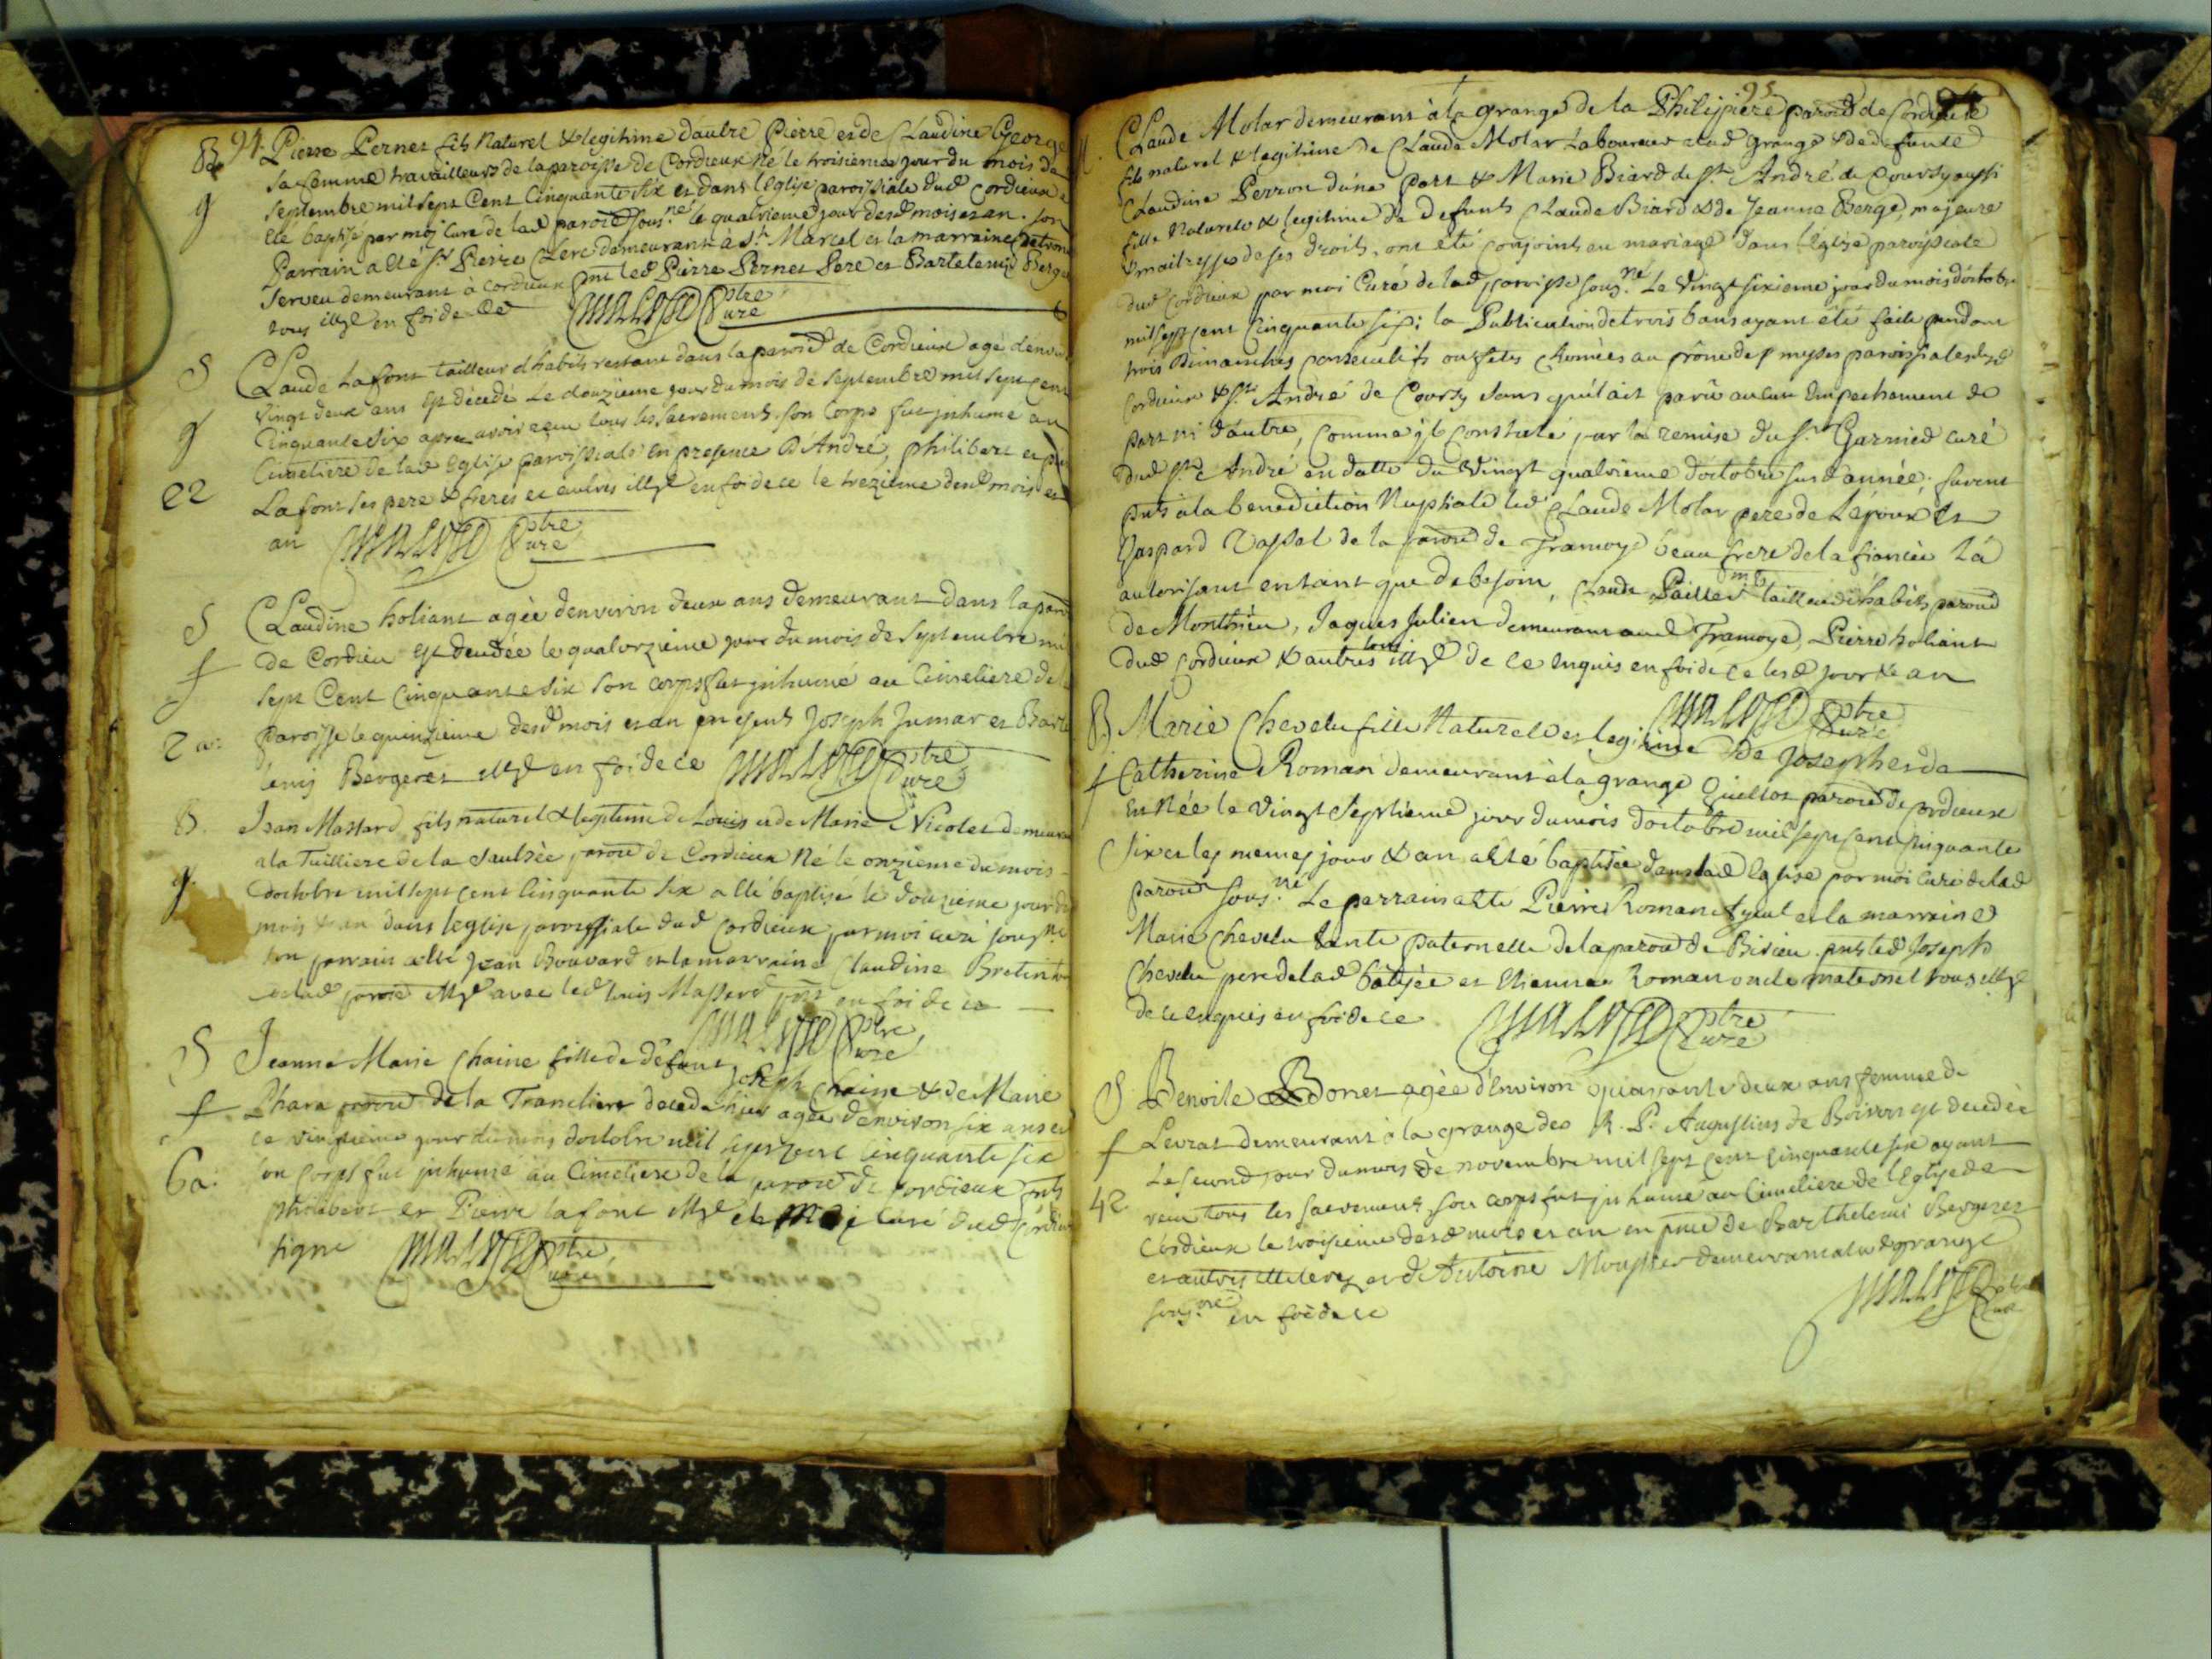 94.
B. Pierre Pernet fils Naturel & legitime dautre Pierre et de Claudine George
sa femme travailleurs de la paroisse de Cordieux Né le troisieme jour du mois de
g septembre mil sept Cent Cinquante six et dans l'Eglise paroissiale dud Cordieux a
été baptisé par moi Curé de lad paroisse sous.né le quatrieme jour desd mois et an. son
Parrain a été sr Pierre Clerc demeurant à St Marcel et la marraine
demeurant a Cordieux pnt led Pierre Pernet Pere et Bartelemi Berge
tous illy en foi de Ce
ptre Curé
S Claude Lafont tailleur d'habits restant dans la paroisse de Cordieux agé denvi
vingt deux ans est décédé Le douzieme jour du mois de septembre mil sept cent
g Cinquante six apres avoir reçu tous les sacrements. son Corps fut inhumé au
Cimetiere de lad Eglise paroissiale en presence d'André, philibert et
22 Lafont ses pere & freres et autres illy en foi de ce le trezieme desd mois et
an
ptre Curé
S Claudine holiant agée denviron deux ans demeurant dans la paro
f de Cordieu est decedée le quatorzieme jour du mois de septembre mi
sept Cent Cinquante six son corps fut inhumé au Cimetiere de
2 a: paroisse le quinzieme desd mois et an presents Joseph Jumar et Barte
lemy Bergeret illy en foi de ce
ptre Curé
B. Jean Massard fils naturel & legitime de Louis et de Marie Nicolet demeura
a la Tuilliere de la Saulsée paroisse de Cordieux Né le onzieme du mois
g. doctobre mil sept cent Cinquante six a été baptisé le douzieme jour du
mois & an dans l'eglise paroissiale dud Cordieux par moi curé sousné
son parrain a été Jean Bouvard et la marraine Claudine
de lad paroisse illy avec led Louis Massard pnt en foi de ce
ptre Curé
S Jeanne Marie Chaine fille de defunt Joseph Chaine & de Marie
f Phara paroisse de la Trancliere decedé hier agée denviron six ans et
ce vingtieme jour du mois doctobre mil sept cent Cinquante six
6 a: son corps fut inhumé au Cimetiere de la paroisse de Cordieux pnts
philibert et Pierre lafont illy et moi curé dud Cordieux
signé
ptre Curé
95
Claude Molar demeurant à la grange de la Philippiere paroisse de Cordieux
fils naturel & legitime de Claude Molar Laboureur a lad Grange & de defunte
Claudine Perron dune part & Marie Biard de St André de Courzy aussi
fille Naturele & legitime de defunts Claude Biard & de Jeanne Berge, majeure
& maitresse de ses droits, ont été conjoints en mariage dans l'Eglise paroissiale
dud Cordieux par moi Curé de lad paroisse sous.né Le Vingt sixieme jour du mois doctobre
mil sept cent Cinquante six: la Publication de trois bans ayant été faite pendant
trois Dimanches consecutifs ou fetes chomées au prône des messes paroissiales dud
Cordieux & St André de Courzy sans qu'il ait parû aucun Empechement de
part ni d'autre, comme il constate par la remise du sr Garnier curé
dud St André en datte du Vingt quatrieme doctobre susd année; furent
pnts a la benediction Nuptiale led Claude Molar pere de Lépoux et
Gaspard Vassal de la paroisse de Tramoye beau frere de la fiancée Lá
autorisant en tant que de besoin, Claude Paillet tailleur d'habits paroisse
de Monthieu, Jaques Julien demeurant aud Tramoye, Pierre holiant
dud Cordieux & autres tous illy de ce Enquis en foi de ce lesd jour & an
ptre Curé
B. Marie Chevelu fille Naturele et legitime de Joseph et de
f Catherine Roman demeurant à la grange Quillot paroisse de Cordieux
est Née le Vingt Septieme jour du mois doctobre mil sept cent Cinquante
six et les memes jour & an a été baptisée dans lad Eglise par moi Curé de lad
paroisse sous.né Le parrain a été Pierre Roman ayeul et la marraine
Marie Chevelu tante paternelle de la paroisse de Birieu. pnts led Joseph
Chevelu pere de lad bâtisée et Etienne Roman oncle maternel tous illy
de ce enquis en foi de ce
ptre Curé
S Benoite Bonet agée d'Environ Quarante deux ans femme de
f Levrat demeurant à la grange des R. P. Augustins de est decedée
Le second jour du mois de novembre mil sept cent Cinquante six ayant
42 reçu tous les sacrements, son corps fut inhumé au Cimetiere de l'Eglise de
Cordieux le troisieme desd mois et an en pnce de Barthelemi Bergeret
et autres illiterez et d'Antoine demeurant a lad grange
sous.né en foi de ce
ptre Curé